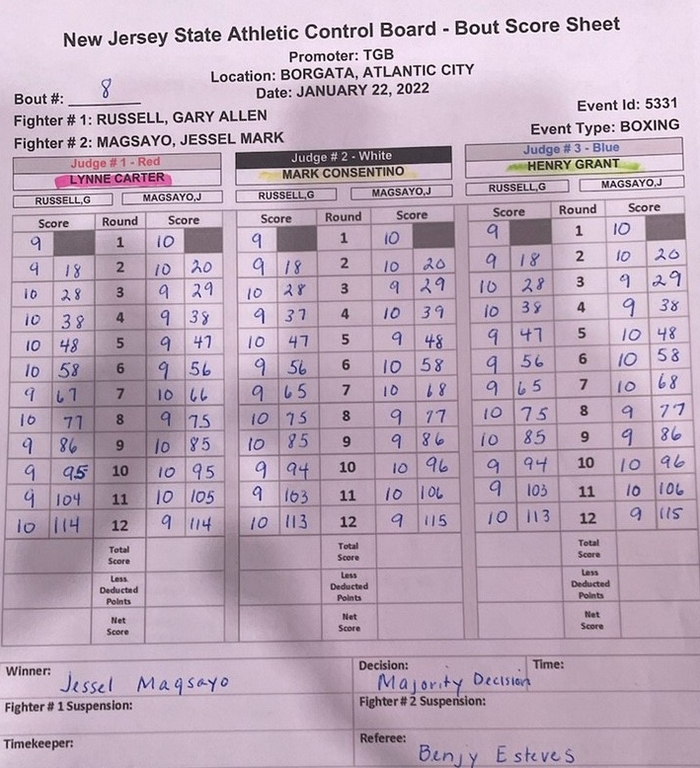 New Jersey State Athletic Control Board - Bout Score Sheet
Promoter: TGB
Location: BORGATA, ATLANTIC CITY
Date: JANUARY 22, 2022
Bout #: 8
Event Id: 5331
Fighter # 1: RUSSELL, GARY ALLEN
Event Type: BOXING
Fighter # 2: MAGSAYO, JESSEL MARK
Judge # 1 - Red Judge # 2 - White Judge # 3 - Blue
LYNNE CARTER MARK CONSENTINO HENRY GRANT
RUSSELL,G MAGSAYO,J RUSSELL,G MAGSAYO,J RUSSELL,G MAGSAYO,J
Score Round Score Score Round Score Score Round Score
9 1 10 9 1 10 9 1 10
9 18 2 10 20 9 18 2 10 20 9 18 2 10 20
10 28 3 9 29 10 28 3 9 29 10 28 3 9 29
10 38 4 9 38 9 37 4 10 39 10 38 4 9 38
10 48 5 9 47 10 47 5 9 48 9 47 5 10 48
10 58 6 9 56 9 56 6 10 58 9 56 6 10 58
9 67 7 10 66 9 65 7 10 68 9 65 7 10 68
10 77 8 9 75 10 75 8 9 77 10 75 8 9 77
9 86 9 10 85 10 85 9 9 86 10 85 9 9 86
9 95 10 10 95 9 94 10 10 96 9 94 10 10 96
9 104 11 10 105 9 103 11 10 106 9 103 11 10 106
10 114 12 9 114 10 113 12 9 115 10 113 12 9 115
Total Total Total
Score Score Score
Less Less Less
Deducted Deducted Deducted
Points Points Points
Net Net Net
Score Score Score
Winner: Jessel Magsayo
Decision: Majority Decision
Time:
Fighter # 1 Suspension:
Fighter # 2 Suspension:
Timekeeper:
Referee: Benjy Esteves